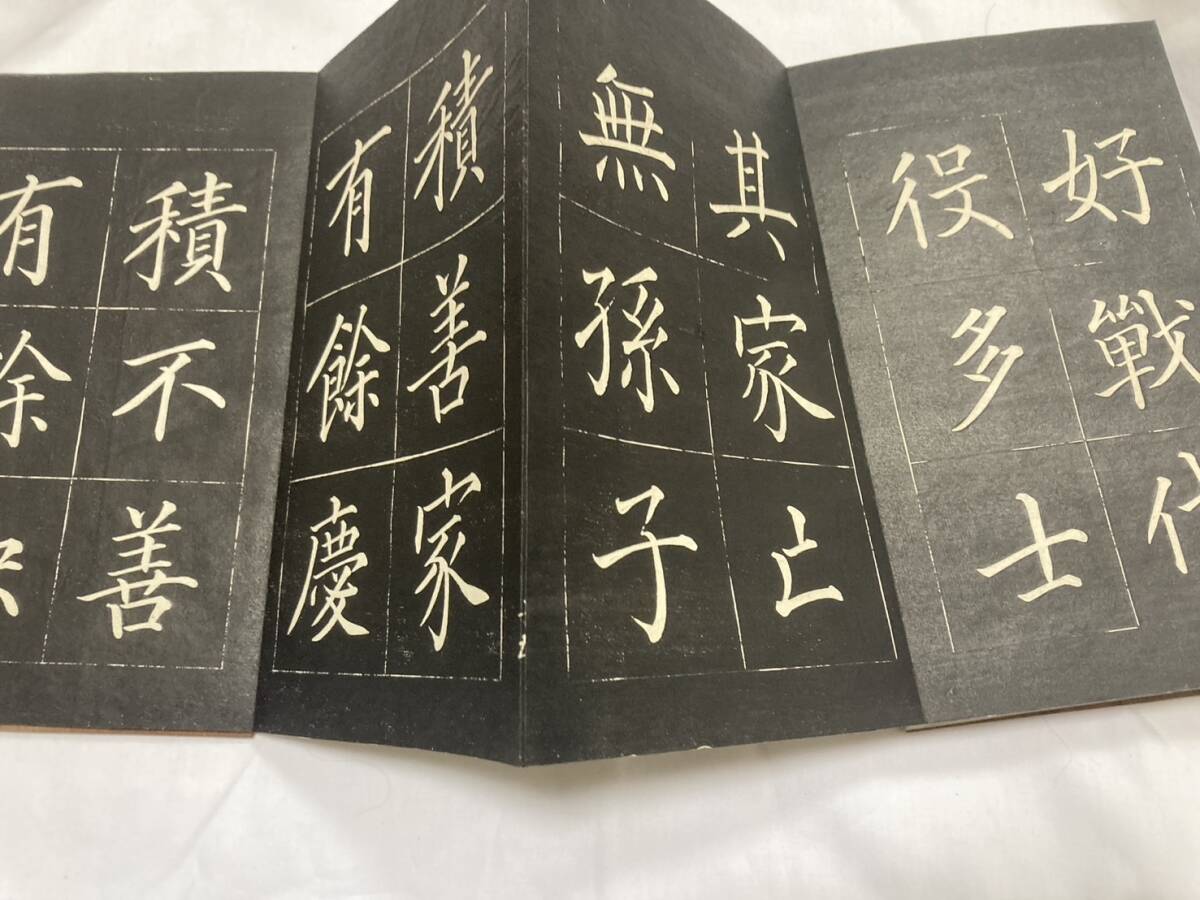 好戰
役多士
其家亡
無孫子
積善家
有餘慶
積不善
有